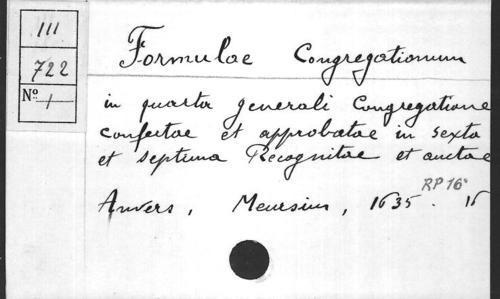 III
722
N° 1
Formulae Congregationum
in quarta generali Congregatione
confertae et approbatae in sexta
et septima Recognitae et auctae
RP 16°
Anvers, Meursius, 1635. 16